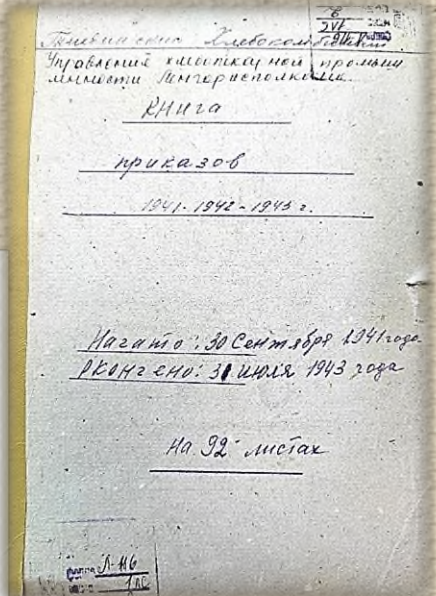 Хлебокомбинат
Управления хлебопекарной промыш
ленности Ленгорисполкома
Книга
приказов
1941-1942-1943 г.
Начато: 30 Сентября 1941 года
Окончено: 31 июля 1943 года
На 92 листах
Л-116